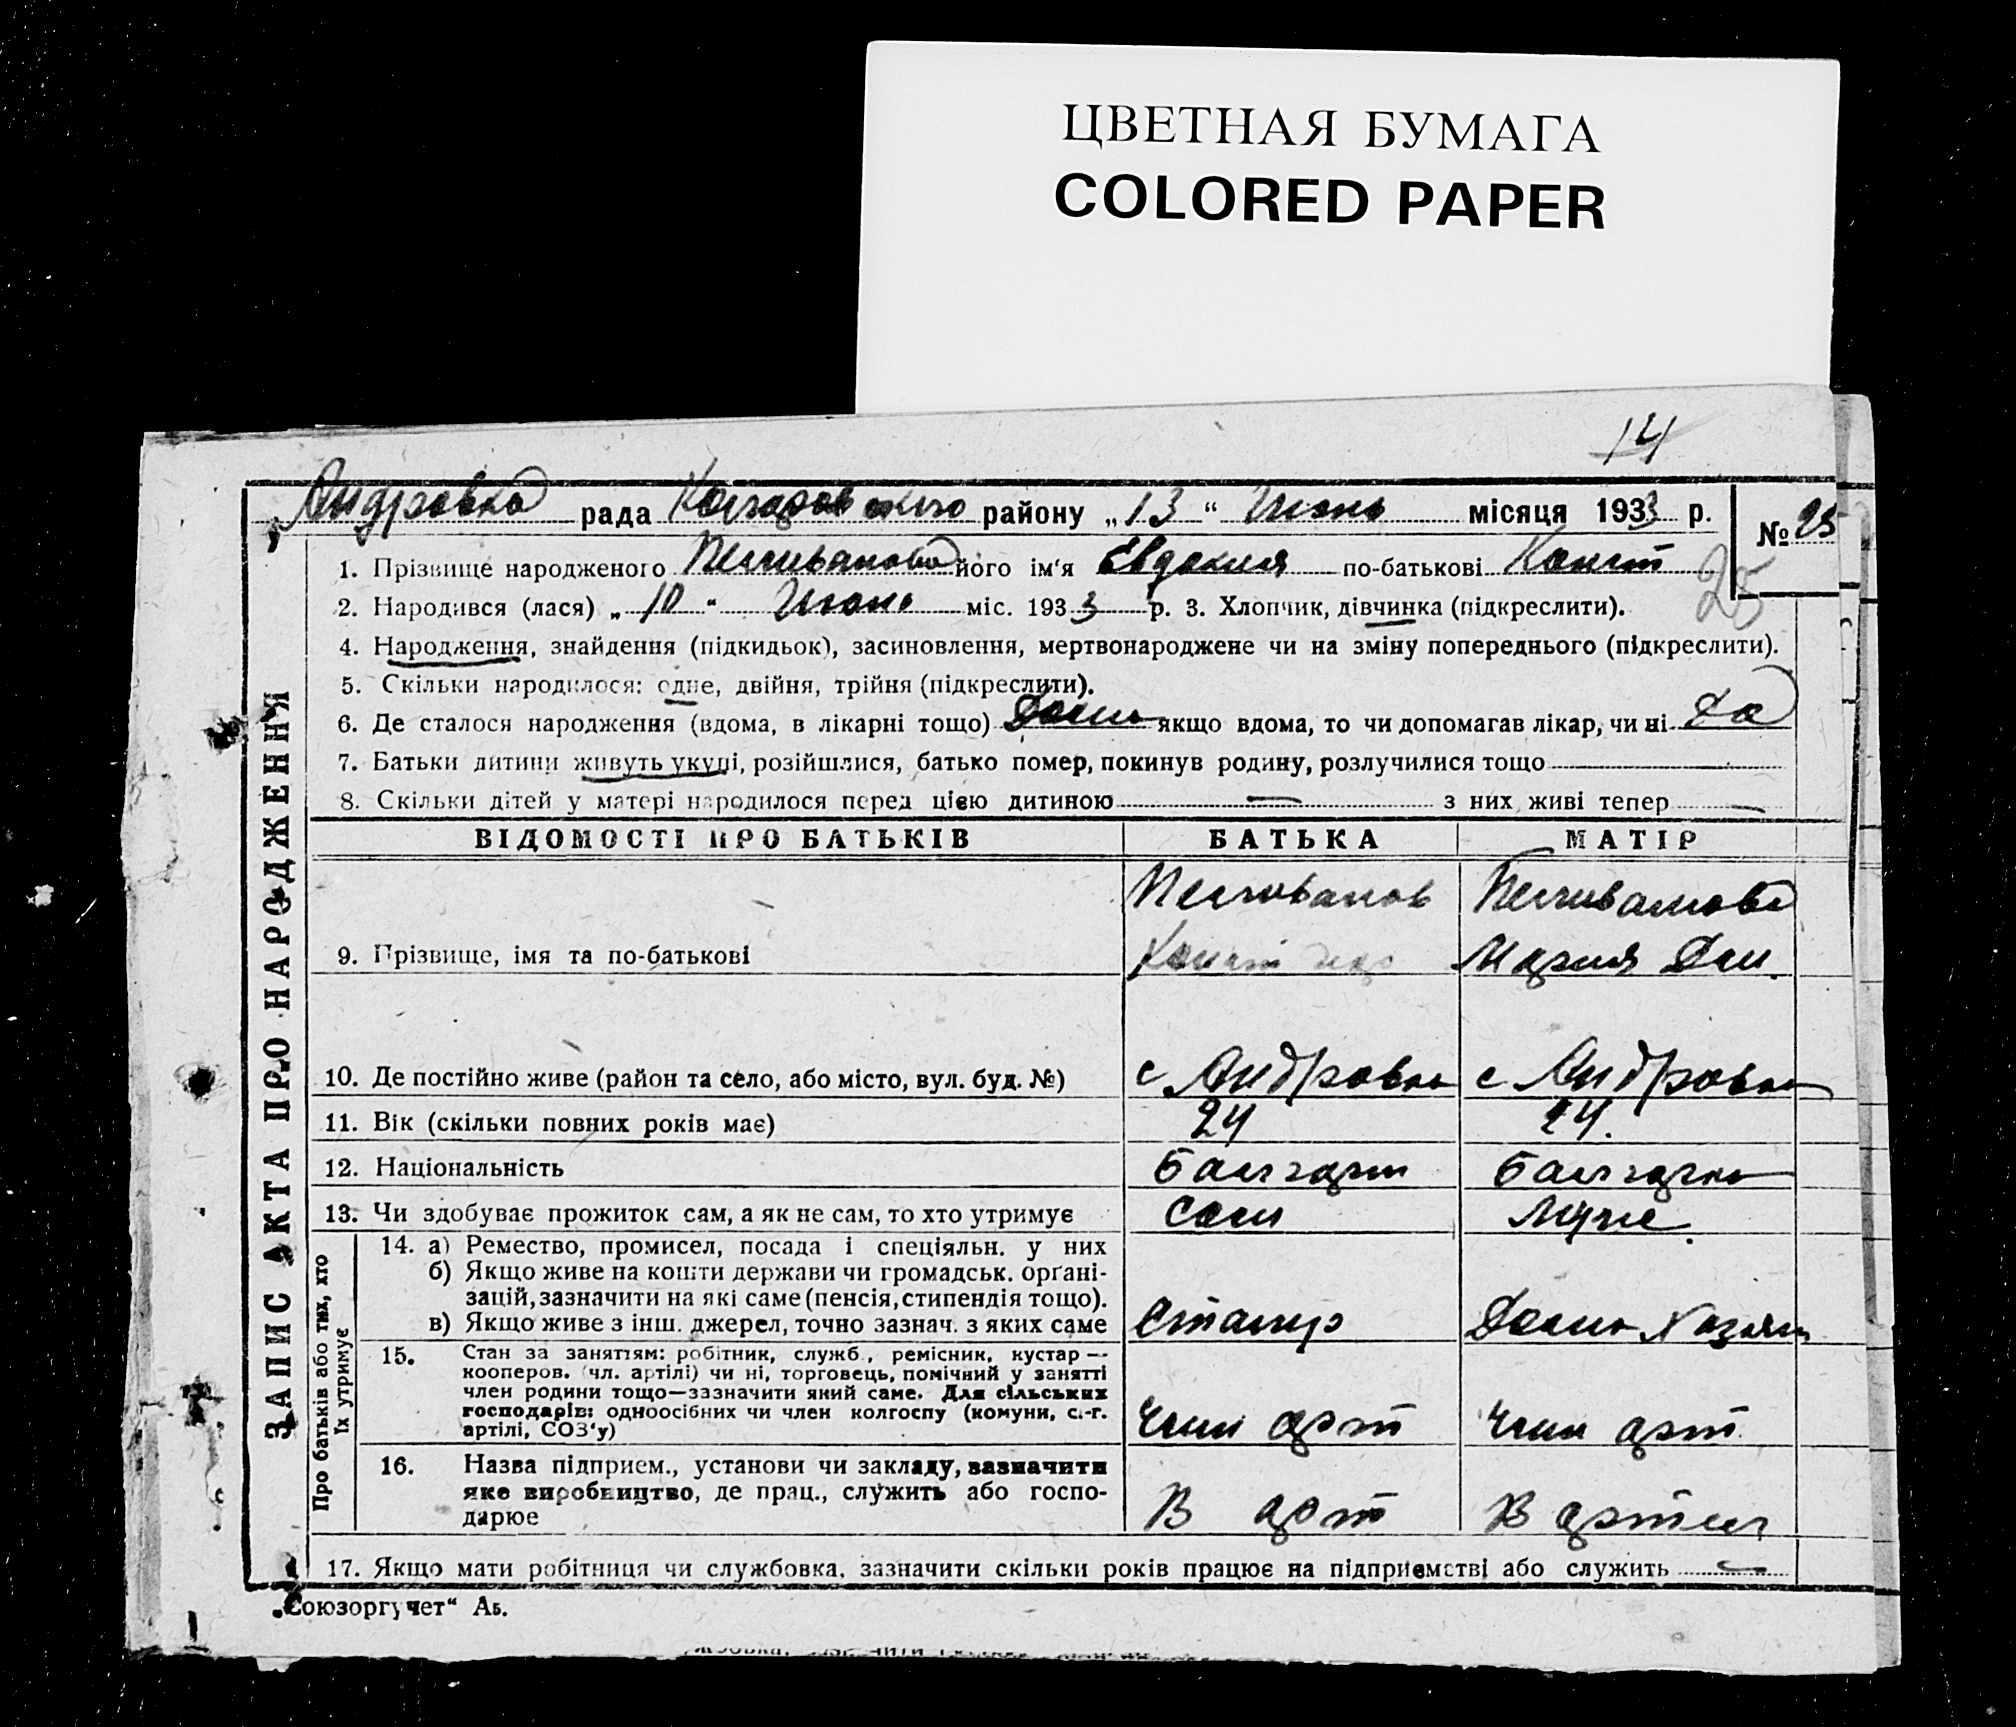 ЦВЕТНАЯ БУМАГА
COLORED PAPER
14
Андровка рада Коларовского району „13“ Июнь місяця 1933 р. № 25
25
1. Прізвище народженого Пелливанова його ім'я Евдокия по-батькові Конст
2. Народився (лася) „10“ Июнь міс. 1933 р. 3. Хлопчик, дівчинка (підкреслити).
4. Народження, знайдення (підкидьок), засиновлення, мертвонароджене чи на зміну попереднього (підкреслити).
5. Скільки народилося: одне, двійня, трійня (підкреслити).
6. Де сталося народження (вдома, в лікарні тощо) Дома якщо вдома, то чи допомагав лікар, чи ні да
7. Батьки дитини живуть укупі, розійшлися, батько помер, покинув родину, розлучилися тощо
8. Скільки дітей у матері народилося перед цією дитиною — з них живі тепер —
ВІДОМОСТІ ПРО БАТЬКІВ БАТЬКА МАТІР
Пелливанов Пелливанова
9. Прізвище, імя та по-батькові Конст Мария Дем.
10. Де постійно живе (район та село, або місто, вул. буд. №) с Андровка с Андровка
11. Вік (скільки повних років має) 24 24.
12. Національність Балгарин Балгарка
13. Чи здобуває прожиток сам, а як не сам, то хто утримує Сам Муже.
14. а) Ремество, промисел, посада і спеціяльн. у них
б) Якщо живе на кошти держави чи громадськ. орґані-
зацій, зазначити на які саме (пенсія, стипендія тощо).
в) Якщо живе з інш. джерел, точно зазнач. з яких саме Столяр Дома Хозяин
15. Стан за заняттям: робітник, служб., ремісник, кустар —
кооперов. (чл. артілі) чи ні, торговець, помічний у занятті
член родини тощо—зазначити який саме. Для сільських
господарів: одноосібних чи член колгоспу (комуни, с.-г.
артілі, СОЗ'у) член арт член арт
16. Назва підприєм., установи чи закладу, зазначити
яке виробництво, де прац., служить або госпо-
дарює В арт В артели
17. Якщо мати робітниця чи службовка, зазначити скільки років працює на підприємстві або служить —
ЗАПИС АКТА ПРО НАРОДЖЕННЯ
Про батьків або тих, хто
їх утримує
„Союзоргучет“ Аб.